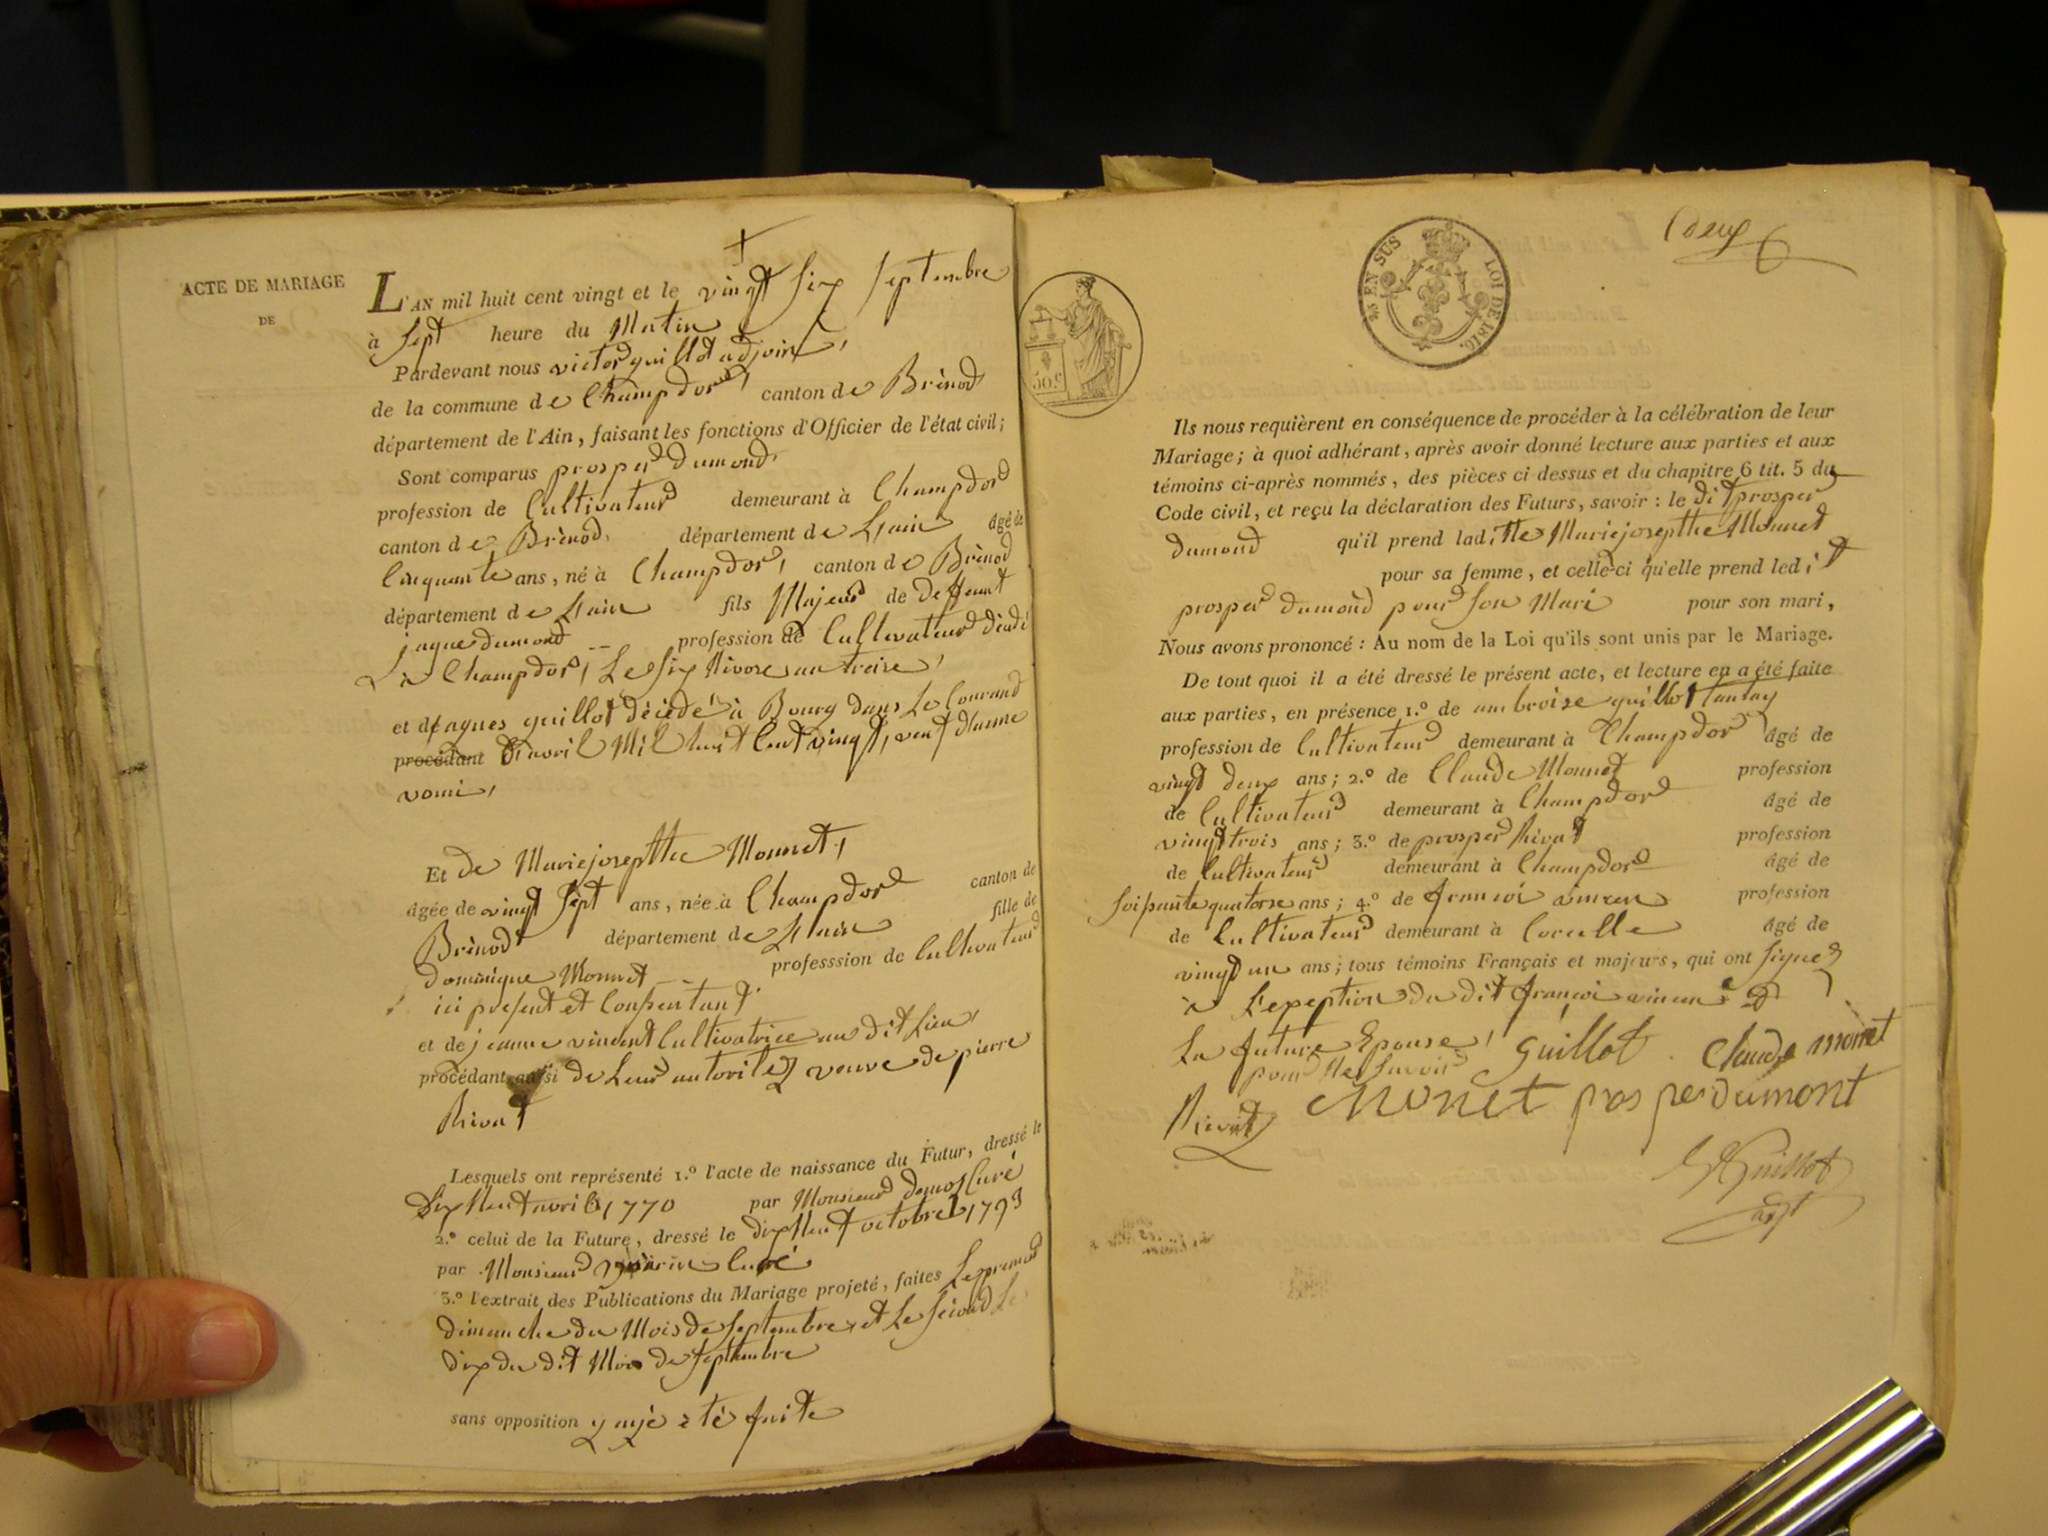 ACTE DE MARIAGE
DE
L'AN mil huit cent vingt et le vingt six septembre
à sept heure du Matin
Pardevant nous victor guillot adjoint
de la commune de Champdor canton de Brénod
département de l'Ain, faisant les fonctions d'Officier de l'état civil;
Sont comparus prosper dumond
profession de Cultivateur demeurant à Champdor
canton de Brénod département de Lain âgé de
Cinquante ans, né à Champdor canton de Brénod
département de Lain fils Majeur de deffeunt
jaque dumond profession de Cultivateur décédé
à Champdor Le six Nivose an treise
et d'agnes guillot décédé à Bourg dans Le Courand
procédant D'avril Mil huit Cent vingt, veuf d'anne
vomi,
Et de Mariejosepthe Monnet,
âgée de vingt sept ans, née à Champdor canton de
Brénod département de Lain fille de
dominique Monnet profession de Cultivateur
ici présent et Consentant
et de jeanne vincent Cultivatrice au dit Lieu,
procédant aussi de Leur autoritez veuve de pierre
Rivat
Lesquels ont représenté 1.º l'acte de naissance du Futur, dressé le
dix Neuf avril 1770 par Monsieur Curé
2.º celui de la Future, dressé le dix Neuf octobre 1793
par Monsieur Curé
3.º l'extrait des Publications du Mariage projeté, faites Le premier
dimanche du Mois de septembre et Le second Le
dix du dit Mois de septembre
sans opposition y aye été faite
25 EN SUS LOI DE 1816.
50.c
Deux
Ils nous requièrent en conséquence de procéder à la célébration de leur
Mariage; à quoi adhérant, après avoir donné lecture aux parties et aux
témoins ci-après nommés, des pièces ci dessus et du chapitre 6 tit. 5 du
Code civil, et reçu la déclaration des Futurs, savoir: le dit prosper
dumond qu'il prend laditte Mariejosepthe Monnet
pour sa femme, et celle-ci qu'elle prend ledit
prosper dumond pour son Mari pour son mari,
Nous avons prononcé: Au nom de la Loi qu'ils sont unis par le Mariage.
De tout quoi il a été dressé le présent acte, et lecture en a été faite
aux parties, en présence 1.º de ambroise guillot tantay
profession de Cultivateur demeurant à Champdor âgé de
vingt deux ans; 2.º de Claude Monnet profession
de Cultivateur demeurant à Champdor âgé de
vingt trois ans; 3.º de prosper Rivat profession
de Cultivateur demeurant à Champdor âgé de
soixante quatorse ans; 4.º de françoi vincen profession
de Cultivateur demeurant à Corcelle âgé de
vingt un ans; tous témoins Français et majeurs, qui ont signez
à L'exeption du dit françoi vincen et
La future Epouse, Guillot Claude monet
pour Ne savoir
Rivat Monet prosper dumont
V Guillot
adjt